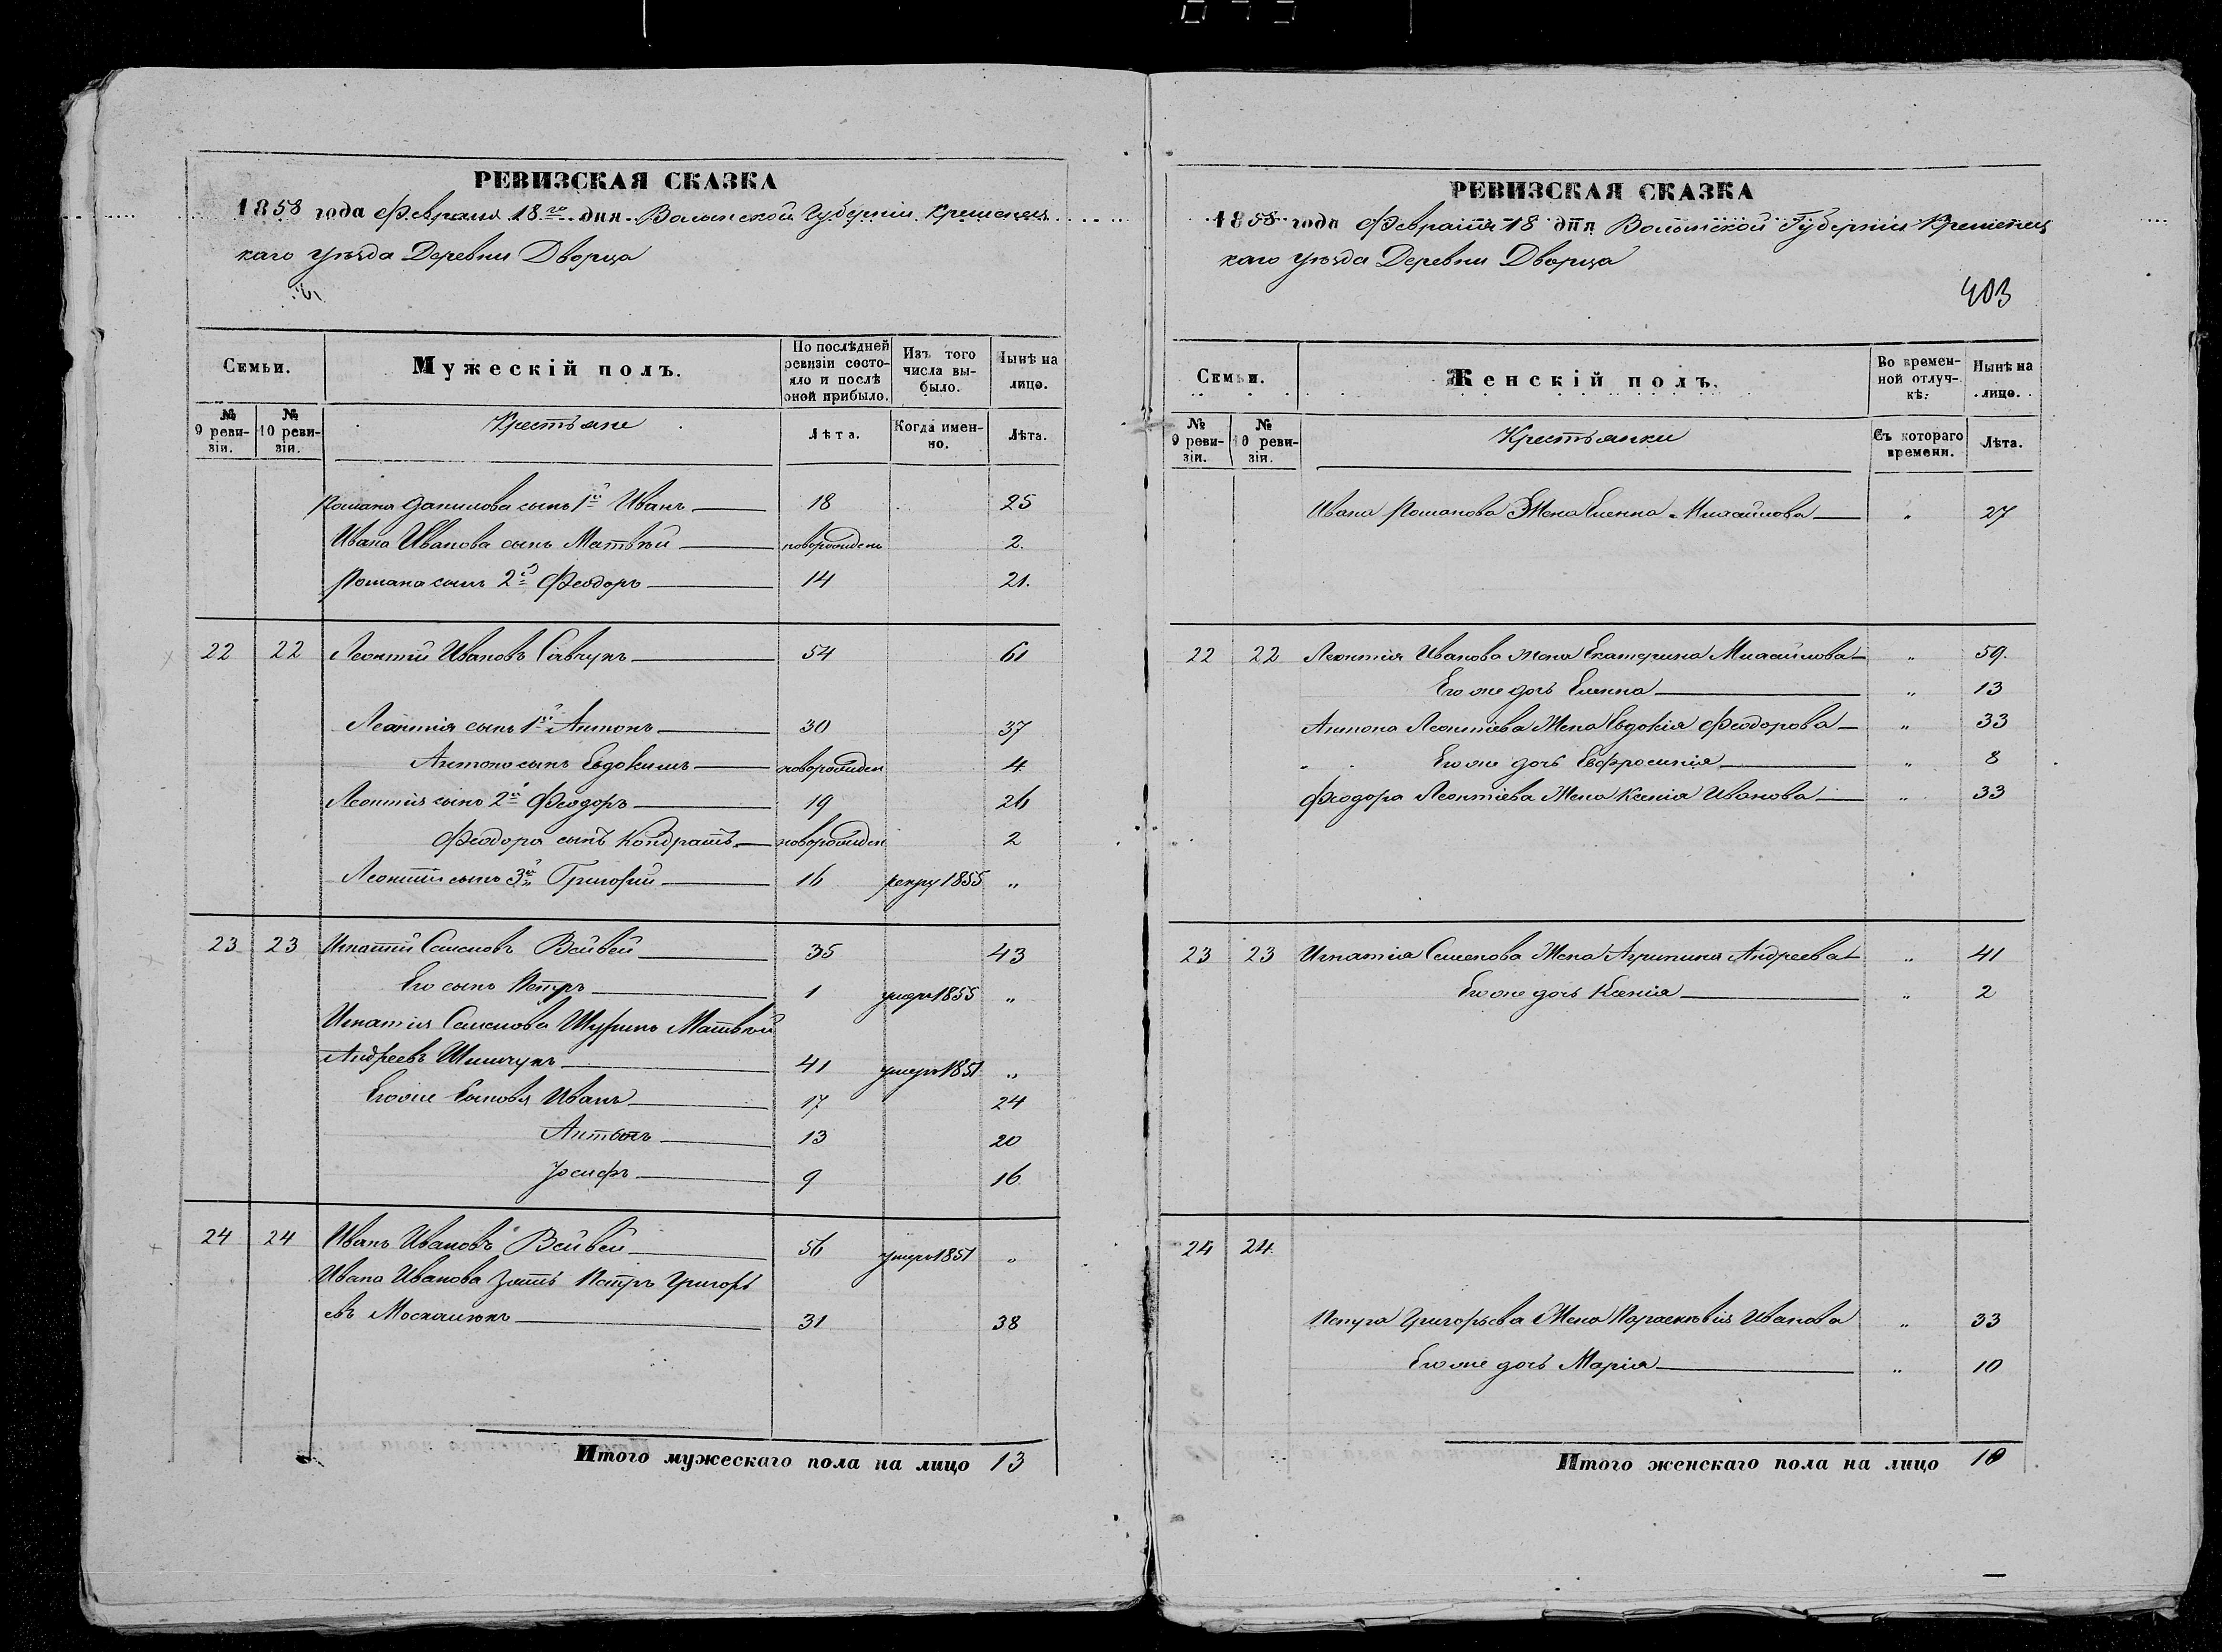 РЕВИЗСКАЯ СКАЗКА
1858 года Февраля 18го дня Волынской Губернии Кременец
каго уѣзда Деревни Дворца
Семьи. Мужескій полъ. По послѣдней ревизіи состояло и послѣ оной прибыло. Изъ того числа выбыло. Нынѣ на лицо.
№ 9 ревизіи. № 10 ревизіи. Крестьяне Лѣта. Когда именно. Лѣта.
Романа Данилова сынъ 1й Иванъ 18 25
Ивана Иванова сынъ Матвѣй новорожденъ 2.
Романа сынъ 2й Феодоръ 14 21.
22 22 Леонтій Ивановъ Савчукъ 54 61
Леонтія сынъ 1й Антонъ 30 37
Антона сынъ Евдокимъ новорожден 4
Леонтія сынъ 2й Феодоръ 19 26
Феодора сынъ Кондратъ новорожден 2
Леонтія сынъ 3й Григорій 16 рекру 1855 "
23 23 Игнатій Семеновъ Вейвей 35 43
Его сынъ Петръ 1 умеръ 1855 "
Игнатія Семенова Шуринъ Матвѣй
Андреевъ 41 умеръ 1851 "
Егоже Сыновя Иванъ 17 24
Антонъ 13 20
Іосифъ 9 16
24 24 Иванъ Ивановъ Вейвей 56 умеръ 1851 "
Ивана Иванова Зять Петръ Григорь
евъ Москалюкъ 31 38
Итого мужескаго пола на лицо 13
РЕВИЗСКАЯ СКАЗКА
1858 года Февраля 18 дня Волынской Губерніи Кременец
каго уѣзда Деревни Дворца
403
Семьи. Женскій полъ. Во временной отлучкѣ. Нынѣ на лицо.
№ 9 ревизіи. № 10 ревизіи. Крестьянки Съ котораго времени. Лѣта.
Ивана Романова Жена Еленна Михайлова " 27
22 22 Леонтія Иванова жена Екатерина Михайлова " 59.
Егоже дочь Еленна " 13
Антона Леонтіева Жена Евдокія Феодорова " 33
Егоже дочь Евфросинія " 8
Феодора Леонтіева Жена Ксенія Иванова " 33
23 23 Игнатія Семенова Жена Агрипина Андреева " 41
Егоже дочь Ксенія " 2
24 24
Петра Григорьева Жена Параскѣвія Иванова " 33
Егоже дочь Марія " 10
Итого женскаго пола на лицо 10